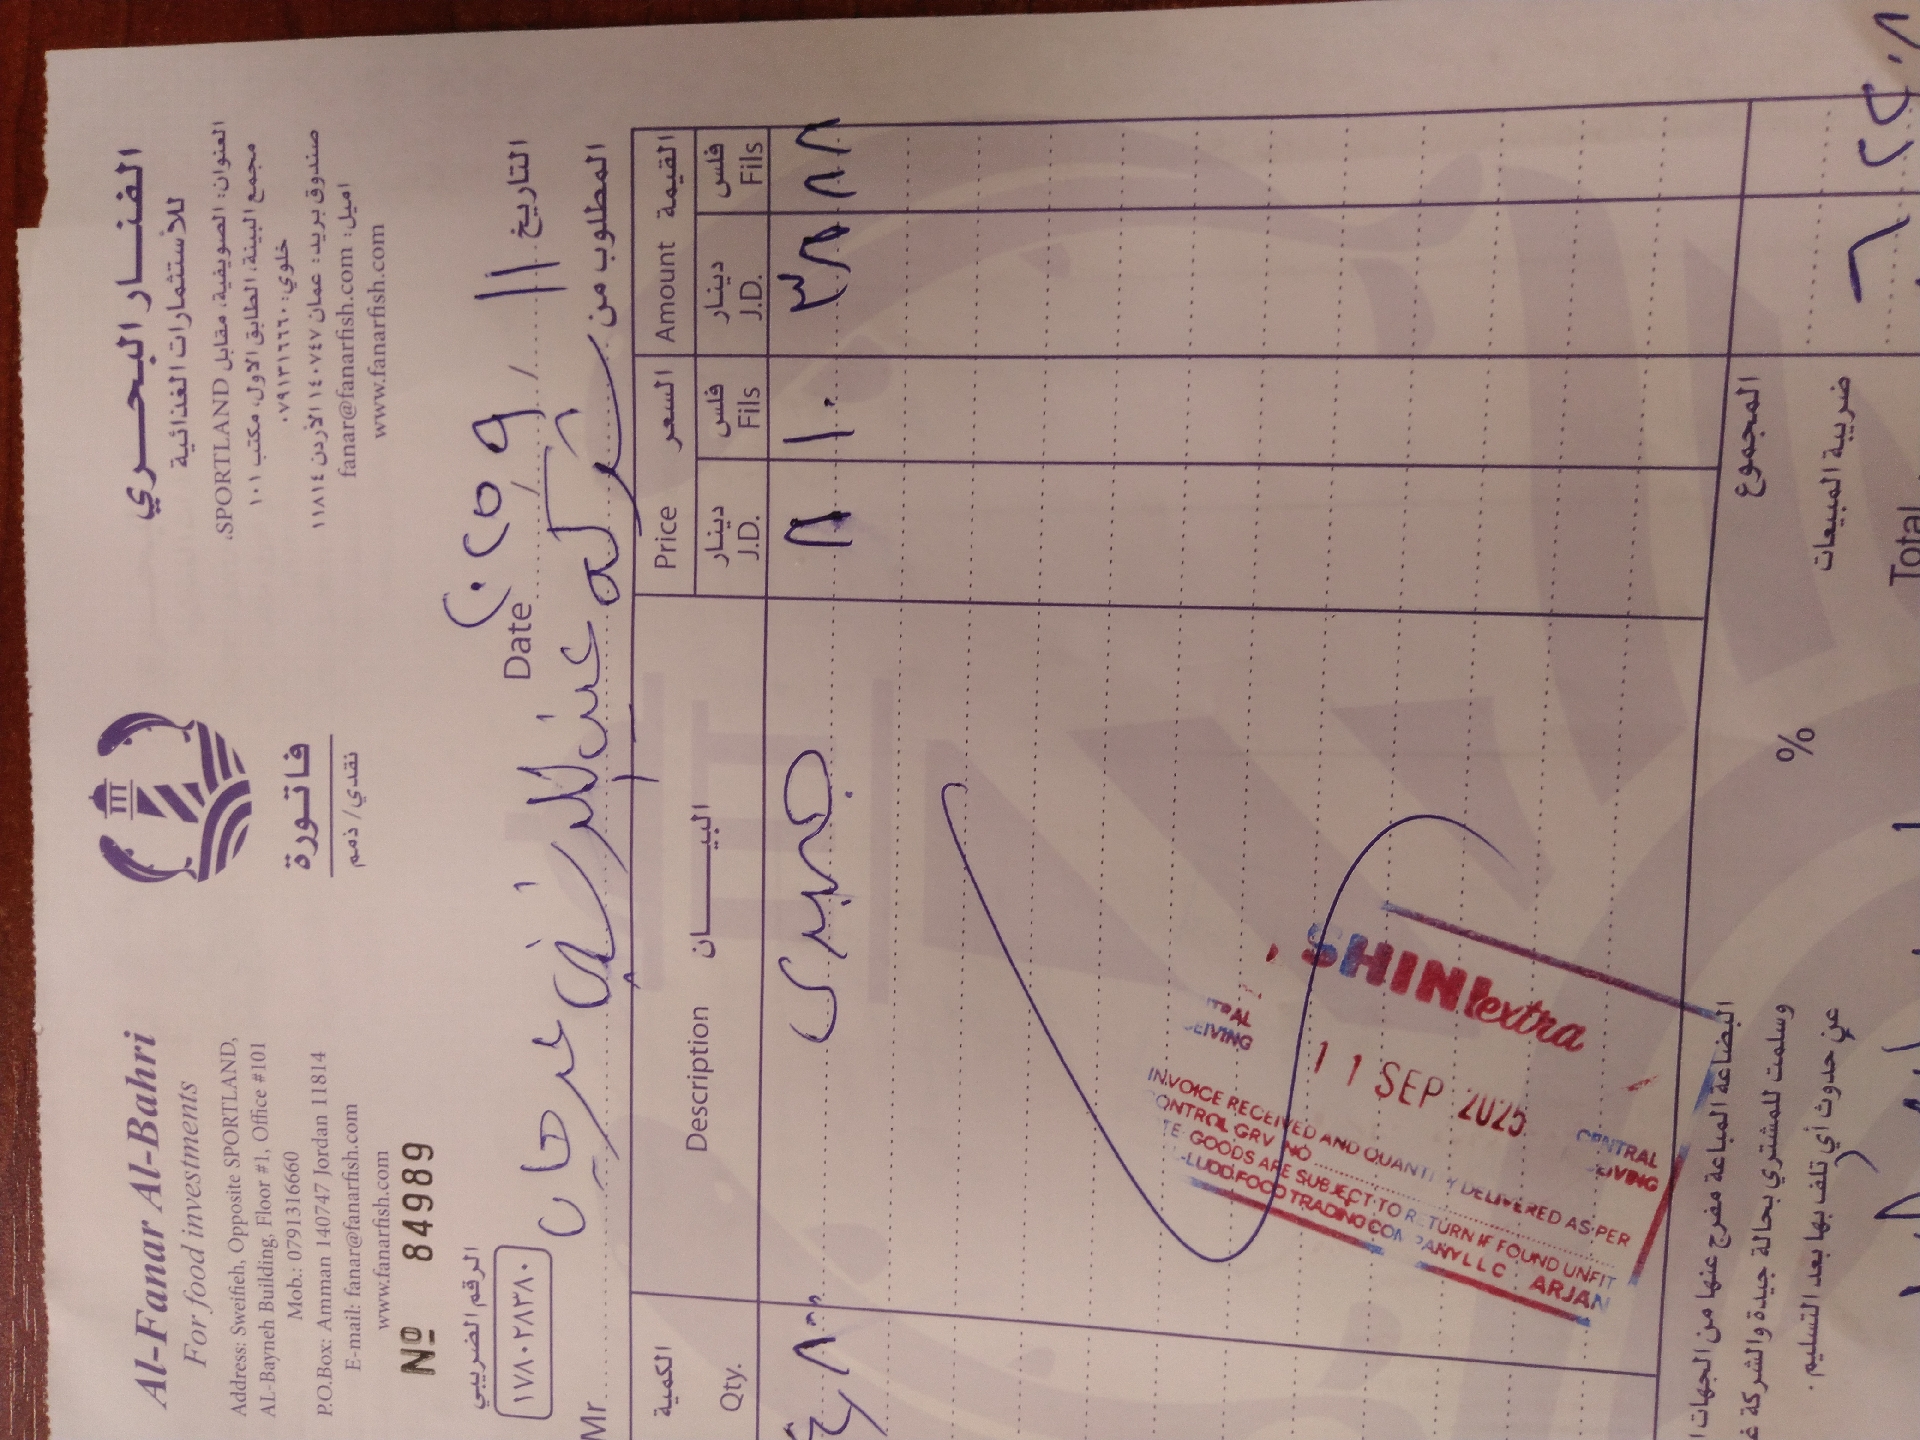 Al-Fanar Al-Bahri
For food investments
Address: Sweifieh, Opposite SPORTLAND,
AL-Bayneh Building, Floor #1, Office #101
Mob.: 0791316660
P.O.Box: Amman 140747 Jordan 11814
E-mail: fanar@fanarfish.com
www.fanarfish.com
فاتورة
نقدي / ذمم
الفنار البحري
للأستثمارات الغذائية
العنوان: الصويفية، مقابل SPORTLAND.
مجمع البينة، الطابق الاول، مكتب ١٠١
خلوي: ٠٧٩١٣١٦٦٦٠
صندوق بريد: عمان ١٤٠٧٤٧ الأردن ١١٨١٤
اميل: fanar@fanarfish.com
www.fanarfish.com
Nº 84989
الرقم الضريبي
١٧٨٠٢٨٣٨٠
Date ٢٠٢٥ ٩ ١١ التاريخ
Mr المطلوب من
الكمية Description البيان Price السعر Amount القيمة
Qty. دينار J.D. فلس Fils دينار J.D. فلس Fils
٨ ١٠ ٣٨ ٨٨
SHINI extra
11 SEP 2025
INVOICE RECEIVED AND QUANTITY DELIVERED AS PER
CONTROL GRV NO
GOODS ARE SUBJECT TO RETURN IF FOUND UNFIT
FOOD TRADING COMPANY LLC ARJAN
CENTRAL
المجموع
البضاعة المباعة مفرج عنها من الجهات
وسلمت للمشتري بحالة جيدة والشركة
عن حدوث أي تلف بها بعد التسليم.
% ضريبة المبيعات
Total